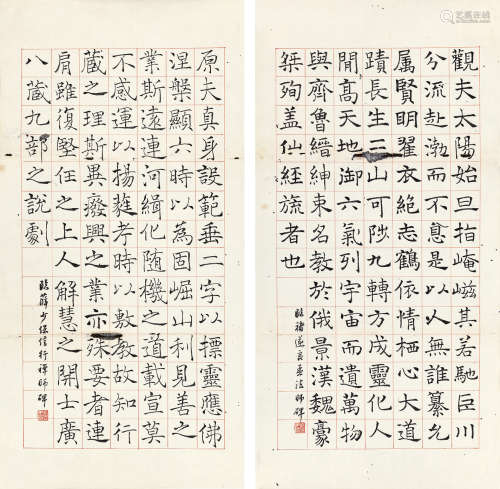 觀夫太陽始旦指崦嵫其若馳巨川
分流赴渤而不息是以人無誰纂允
属賢明翟衣絕志鶴依情栖心大道
蹟長生二山可陟九轉方成靈化人
閒高天地御六氣列宇宙而遺萬物
與齊魯縉紳束名教於俄景漢魏豪
桀殉盖仙經旒者也
臨褚遂良孟法師碑
原夫真身設範垂二字以摽靈應佛
涅槃顯六時以為固崛山利見善之
業斯遠連河緝化随機之道載宣莫
不感運以揚蕤考時以敷教故知行
蔵之理斯異廢興之業亦殊要者連
肩雖復堅任之上人解慧之開士廣
八蔵九部之說劇
臨薛少保信行禪師碑